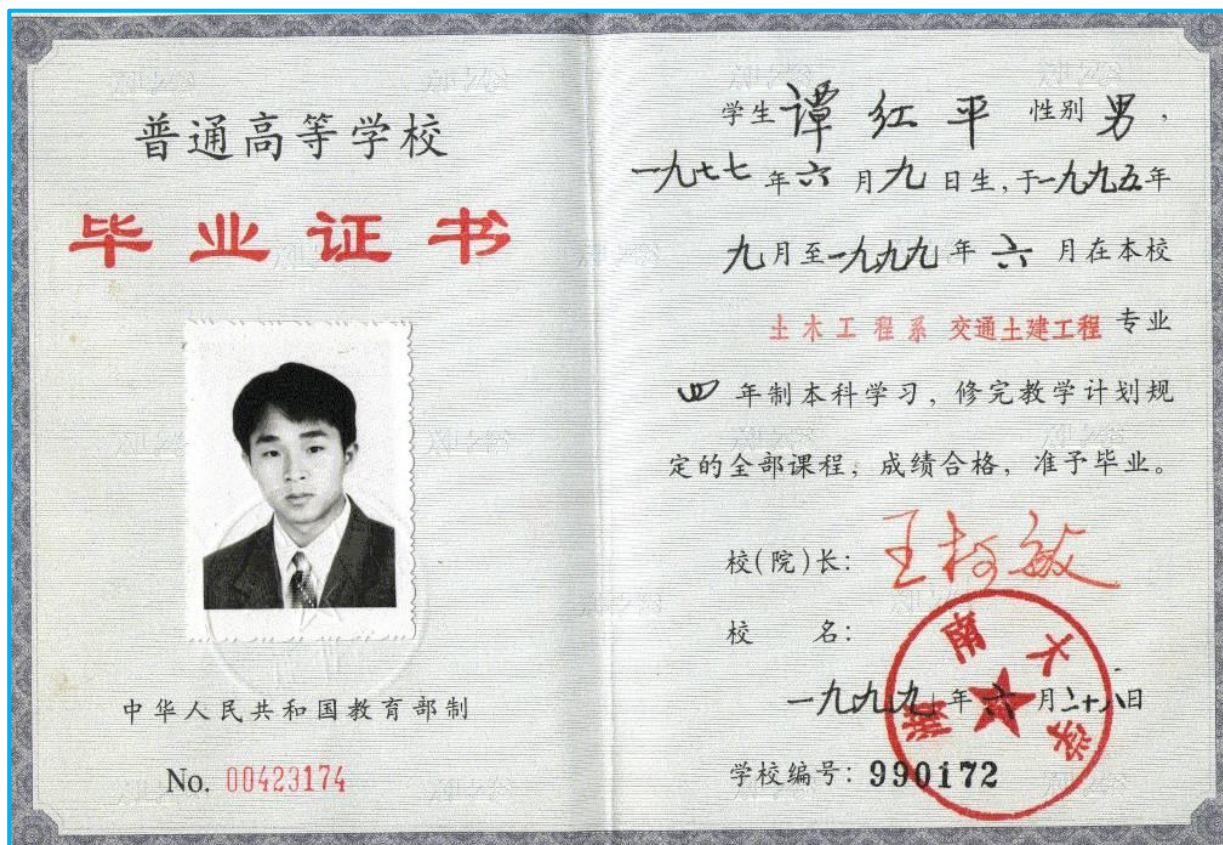 普通高等学校
毕业证书
中华人民共和国教育部制
No. 00423174
学生谭红平性别男，
一九七七年六月九日生，于一九九五年
九月至一九九九年六月在本校
土木工程系 交通土建工程专业
四年制本科学习，修完教学计划规
定的全部课程，成绩合格，准予毕业。
校(院)长：王柯敏
校 名：
湖南大学
一九九九年六月二十八日
学校编号：990172